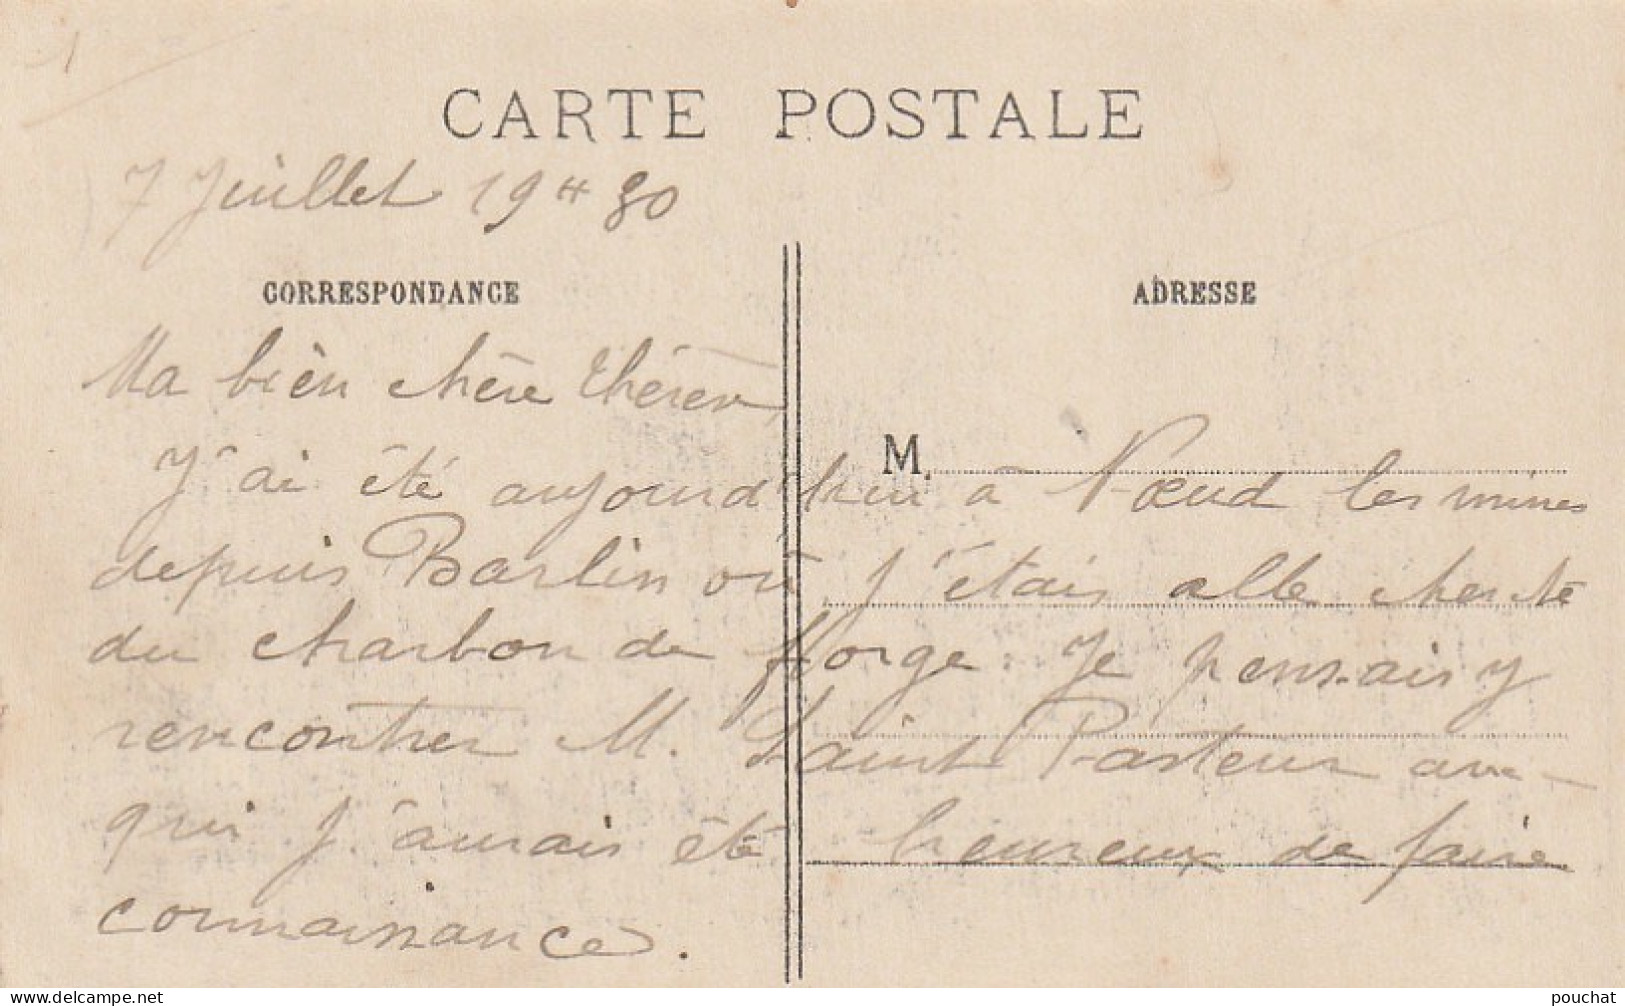 CARTE POSTALE
7 Juillet 19 H 80
CORRESPONDANCE
ADRESSE
Ma bien chère Thérèse
M.
J'ai été aujourd'hui à Nœud les mines
depuis Barlin où j'étais allé cherché
du charbon de forge. Je pensais y
rencontrer M. Saint Pasteur avec
qui j'aurais été heureux de faire
connaissance.
pouchat